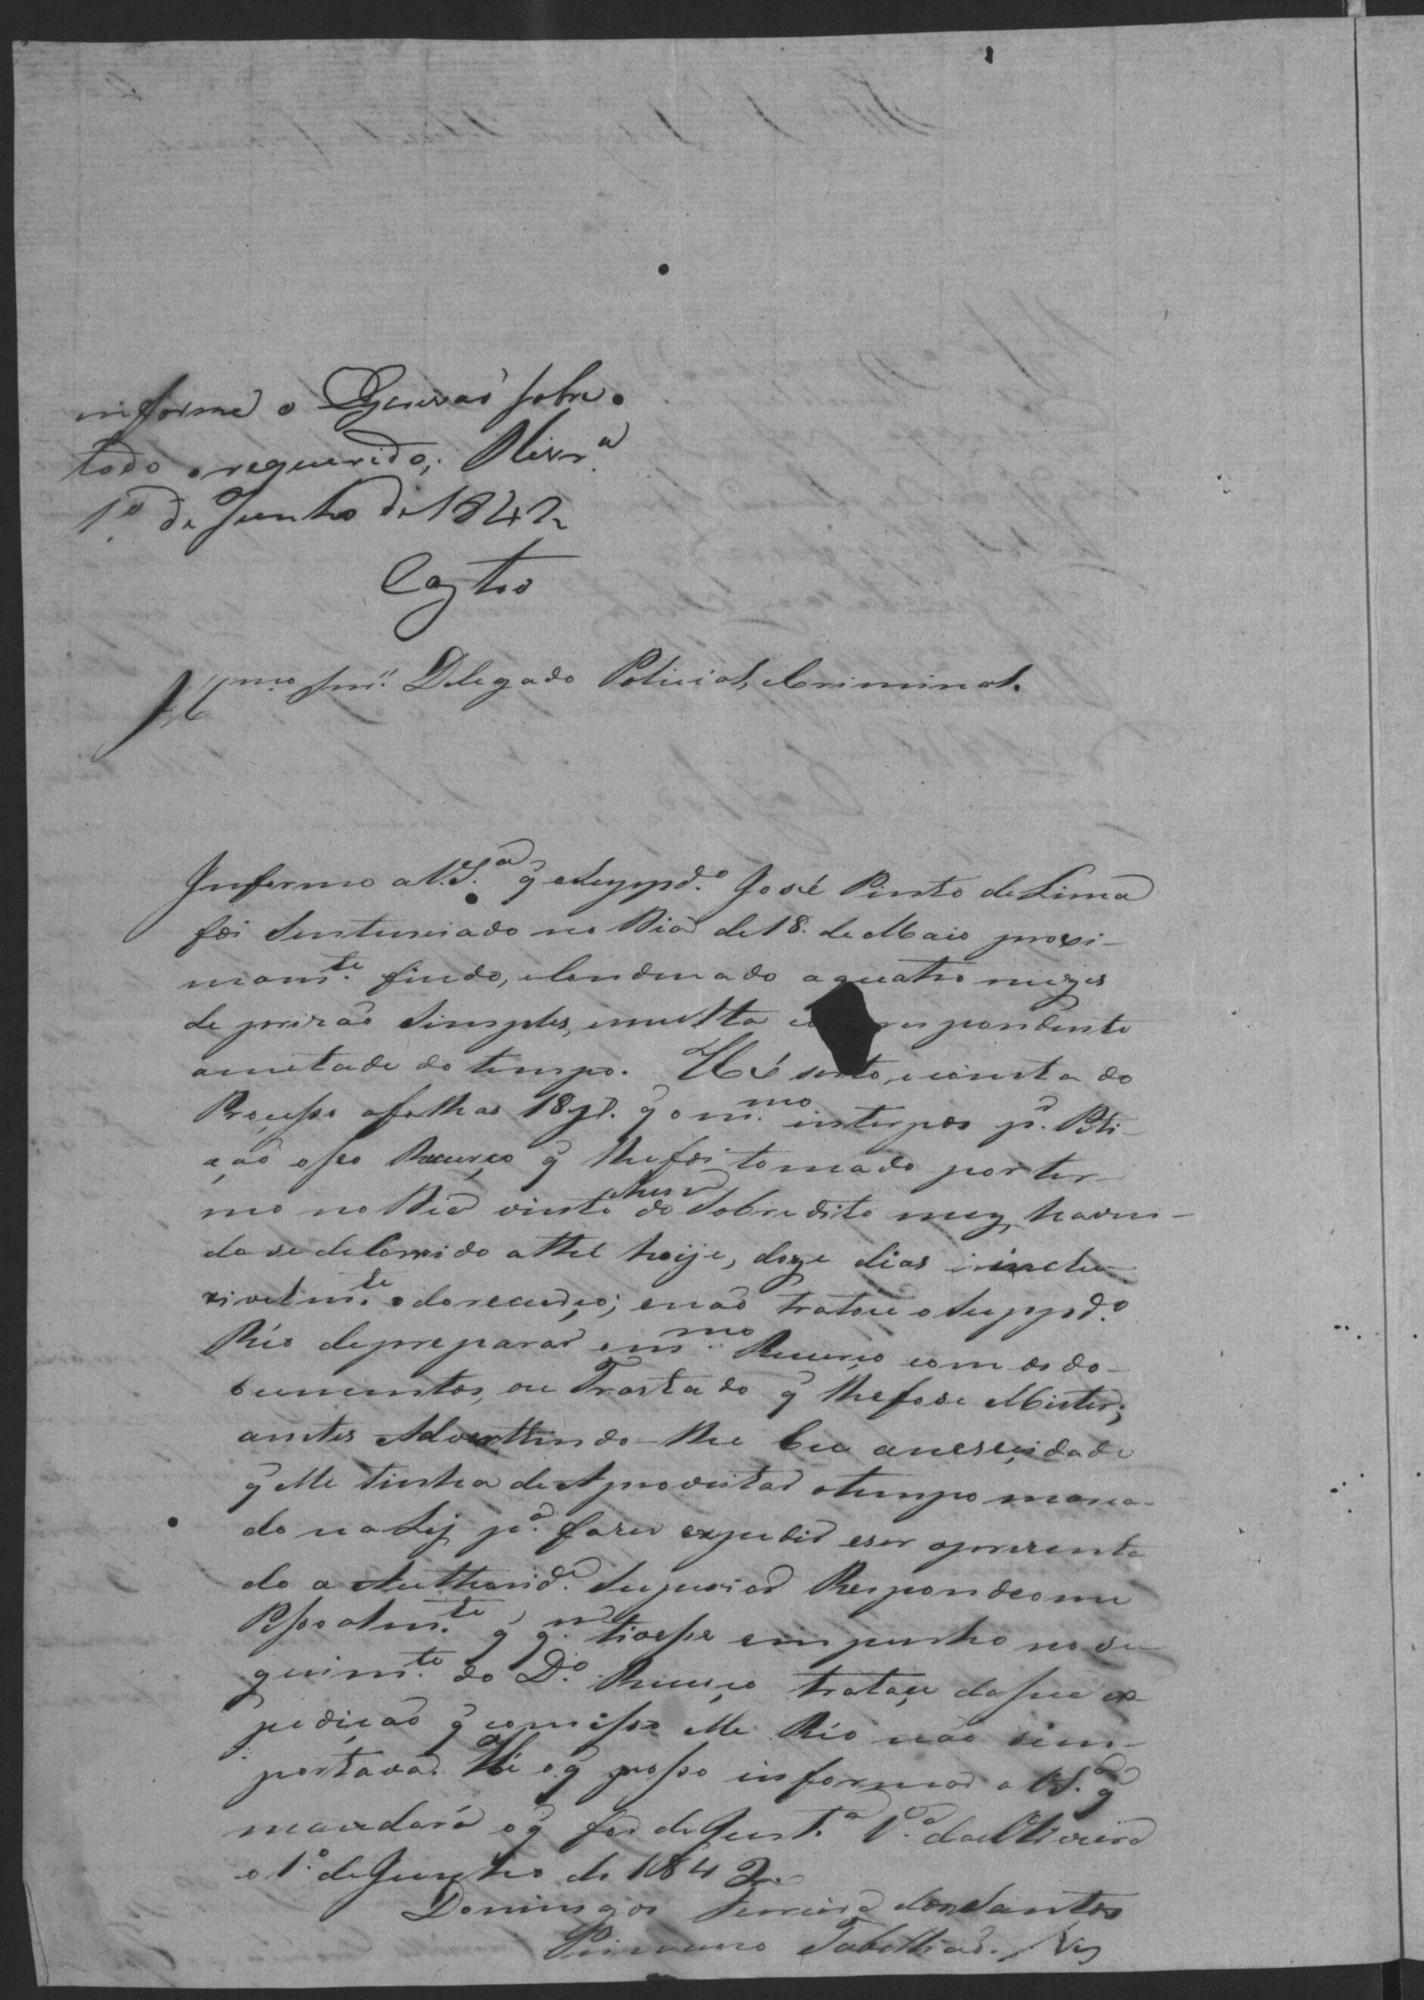 informe o Escrivaõ sobre
todo o requerido; Olivr.ª
1.º de Junho de 1842
Castro
Ill.mo Snr. Delegado Policial, e Criminal.
Informo a V.S.ª q̃ o Supp.do José Pinto de Lima
foi Sentenciado no Dia de 18. de Maio proxi-
mam.te findo, e Condenado a quatro mezes
de prizaõ Simples, e multa correspondente
ametade do tempo. Hé serto, e consta do
Proçesso afolhas 18 q̃ o m.mo interpos p.r Peti-
çaõ o seo Recurço q̃ lhe foi tomado por ter-
mo no Dia vinte do Sobredito mez, haven-
do se deCorrido athé hoije, doze dias inclu-
zivelm.te o do recurço; e naõ tratou o Supp.do
Réo de preparar o m.mo Recurço com os do-
cumentos, ou Traslado q̃ lhe fose Mister;
antes Advirtindo-lhe Eu aneseçidade
q̃ elle tinha de Aproveitar o tempo marca-
do na Lej p.ª fazer expedir eser aprezenta
do a Authorid.e Superior Respondeo me
Pssoalm.te q̃ q.m tivesse empenho no se-
guim.to do D.º Recurço trataçe da sua ex
pediçaõ q̃ com isso elle Réo naõ sim-
portava. Hé o q̃ posso informar a V.S.ª q̃
mandará o q̃ for de Just.ª V.ª da Oliveira
o 1.º de Junho de 1842
Domingos Ferreira dos Santos
Primeiro Tabelliaõ.